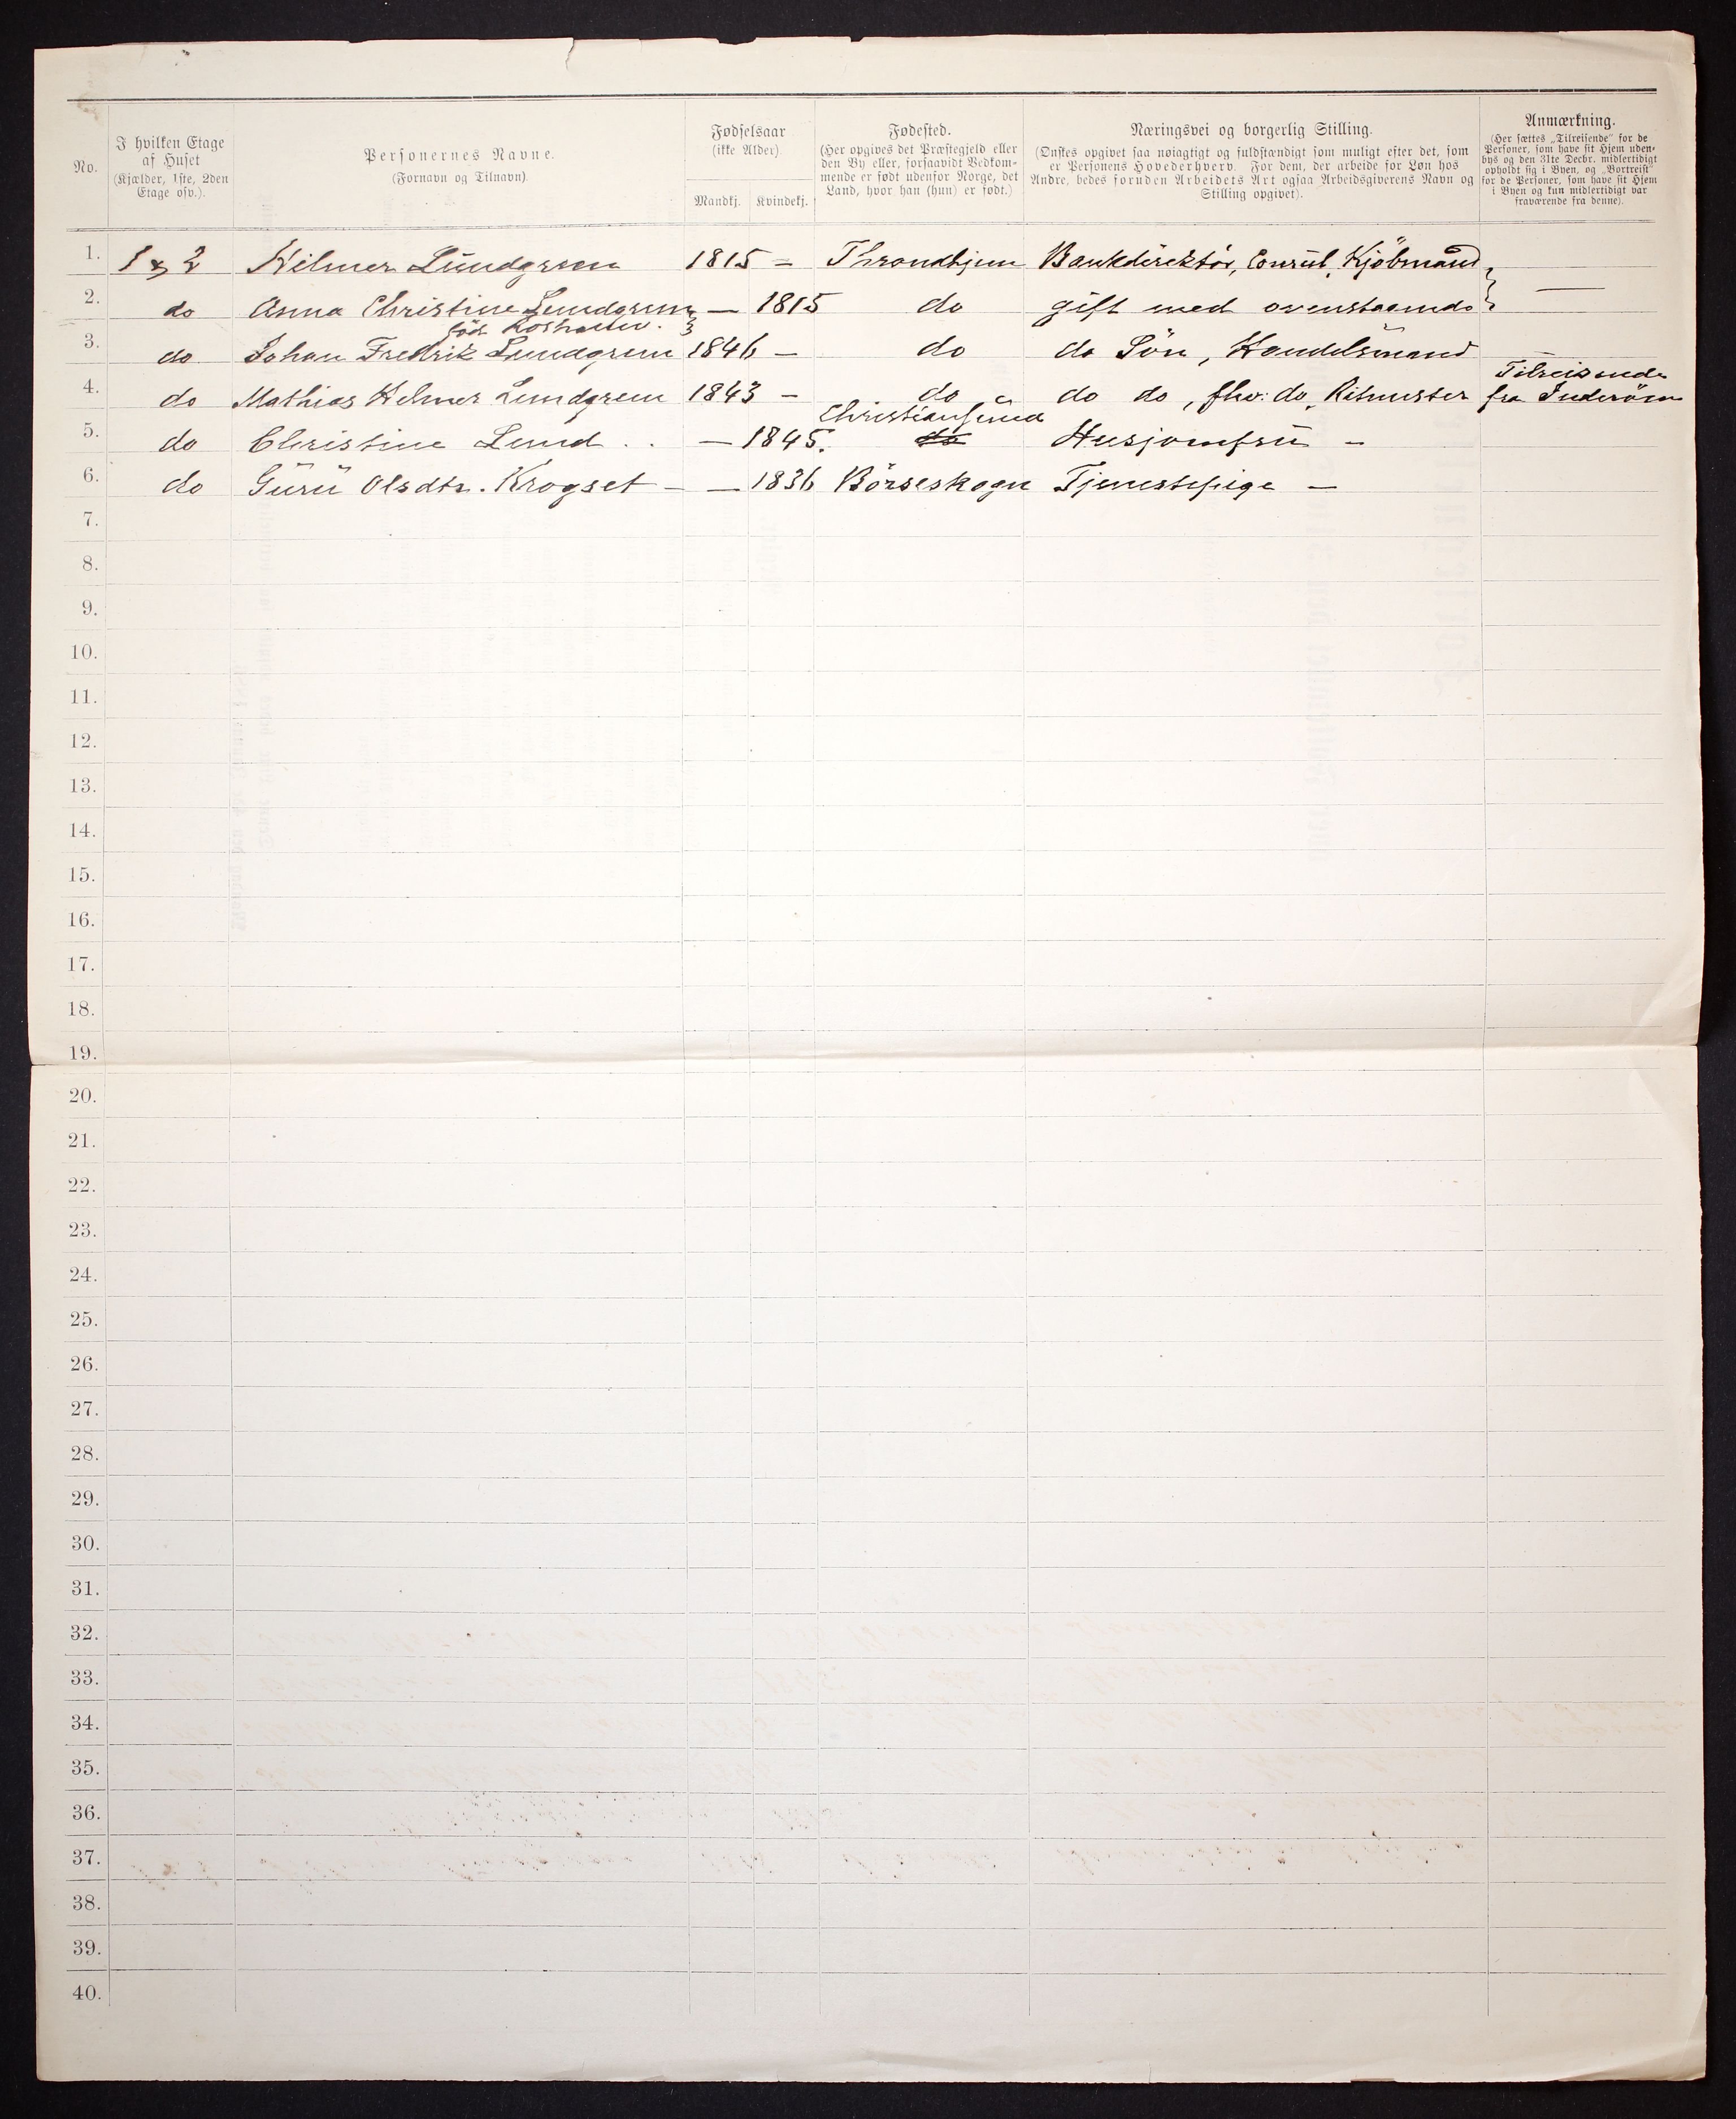 No.
I hvilken Etage
af Huset
(Kjælder, 1ste, 2den
Etage osv.).
Personernes Navne.
(Fornavn og Tilnavn).
Fødselsaar
(ikke Alder).
Mandkj. Kvindekj.
Fødested.
(Her opgives det Præstegjeld eller
den By eller, forsaavidt Vedkom-
mende er født udenfor Norge, det
Land, hvor han (hun) er født.)
Næringsvei og borgerlig Stilling.
(Ønskes opgivet saa nøiagtigt og fuldstændigt som muligt efter det, som
er Personens Hovederhverv. For dem, der arbeide for Løn hos
Andre, bedes foruden Arbeidets Art ogsaa Arbeidsgiverens Navn og
Stilling opgivet).
Anmærkning.
(Her sættes „Tilreisende" for de
Personer, som have sit Hjem uden-
bys og den 31te Decbr. midlertidigt
opholdt sig i Byen, og „Bortreist"
for de Personer, som have sit Hjem
i Byen og kun midlertidigt var
fraværende fra denne).
1. 1 & 2 Hilmer Lundgreen 1815 – Throndhjem Bankdirektör, Consul, Kjöbmand
2. do Anna Christine Lundgreen — 1815 do gift med ovenstaaende —
född
3. do Johan Fredrik Lundgreen 1846 – do do Sön, Handelsmand —
4. do Mathias Hilmer Lundgreen 1843 – do do do, fhv: do, Ritmester Tilreisende
fra Inderöen
5. do Christine Lund . . — 1845. do Christiansund Husjomfru –
6. do Guru Olsdtr. Krogset – — 1836 Börseskogn Tjenestepige —
7.
8.
9.
10.
11.
12.
13.
14.
15.
16.
17.
18.
19.
20.
21.
22.
23.
24.
25.
26.
27.
28.
29.
30.
31.
32.
33.
34.
35.
36.
37.
38.
39.
40.